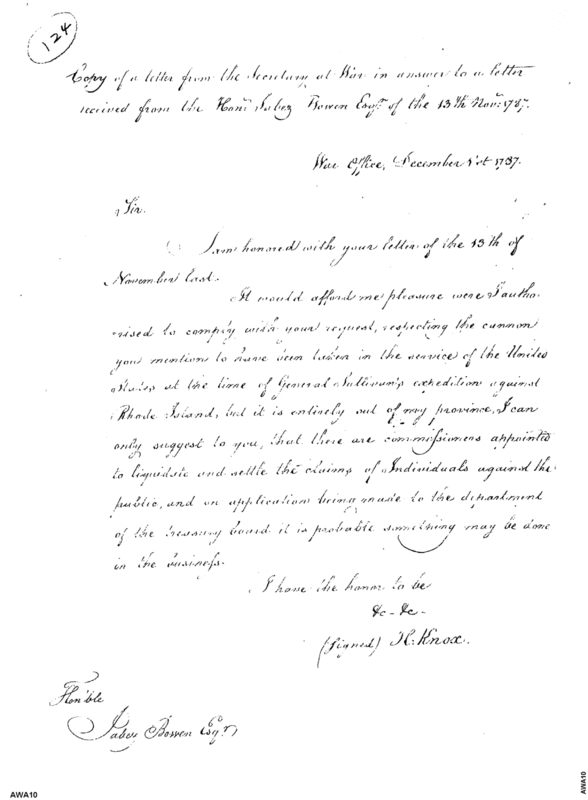 124
Copy of a letter from the Secretary at War in answer to a letter
received from the Honl. Jabez Bowen Esqr. of the 13th Novr. 1787.
War Office, December 1st 1787.
Sir.
I am honored with your letter of the 13th of
November last.
It would afford me pleasure were I autho-
rised to comply with your request, respecting the cannon
you mention to have been taken in the service of the United
States at the time of General Sullivan's expedition against
Rhode Island, but it is entirely out of my province, I can
only suggest to you, that there are commissioners appointed
to liquidate and settle the claims of Individuals against the
public, and on application being made to the department
of the treasury board it is probable something may be done
in the business.
I have the honor to be
&c - &c -
(signed) H. Knox.
Honble
Jabez Bowen Esqr.
AWA10
AWA10